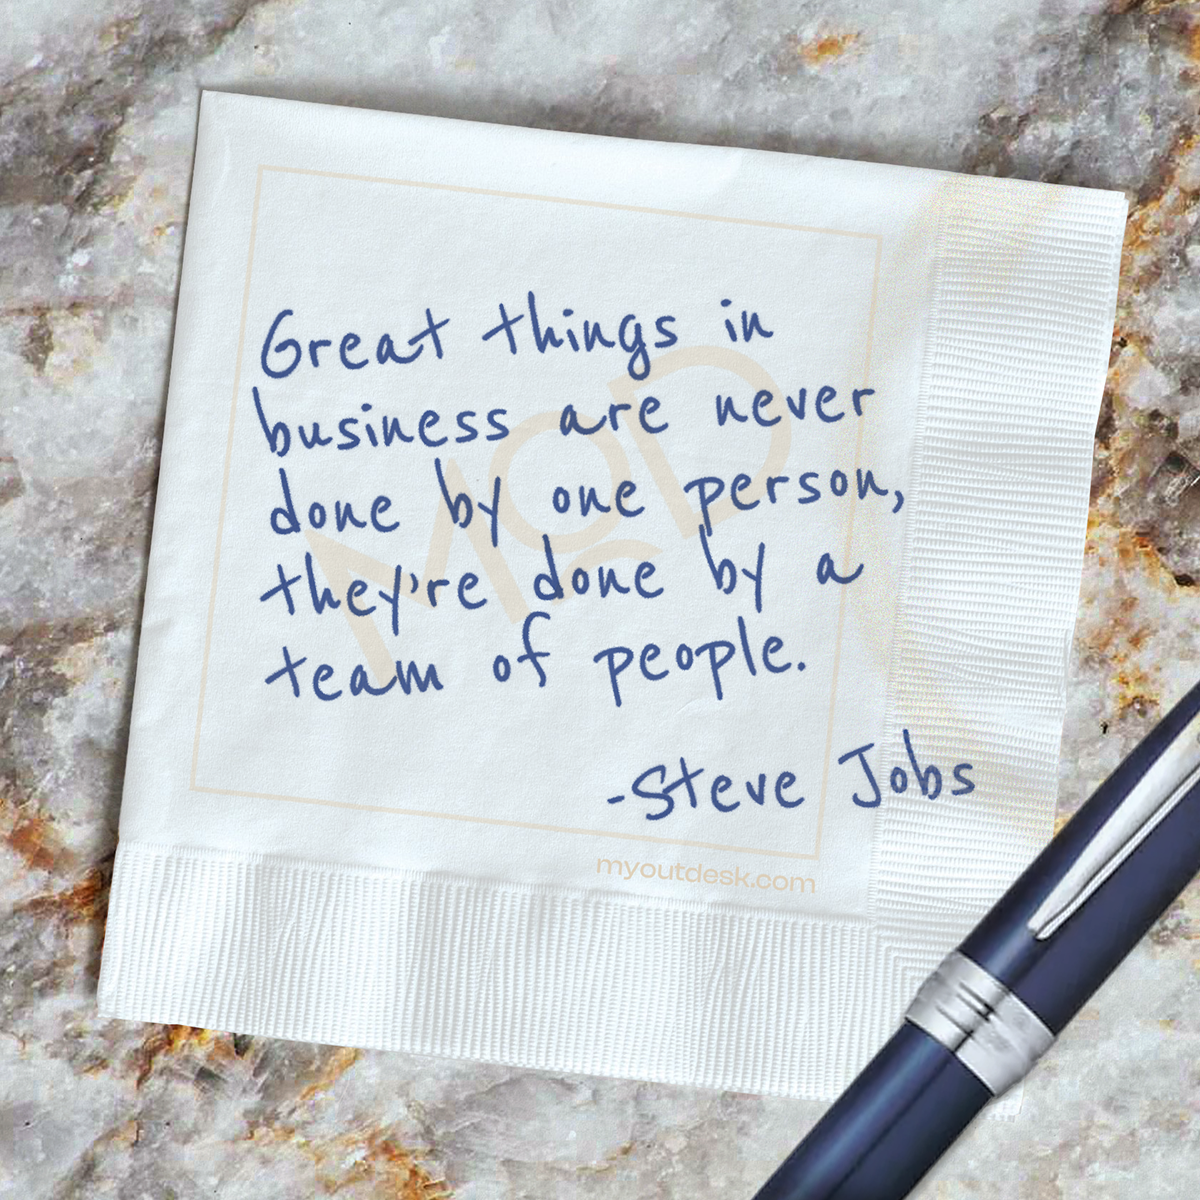 Great things in
business are never
done by one person,
they're done by a
team of people.
-Steve Jobs
MOD
myoutdesk.com